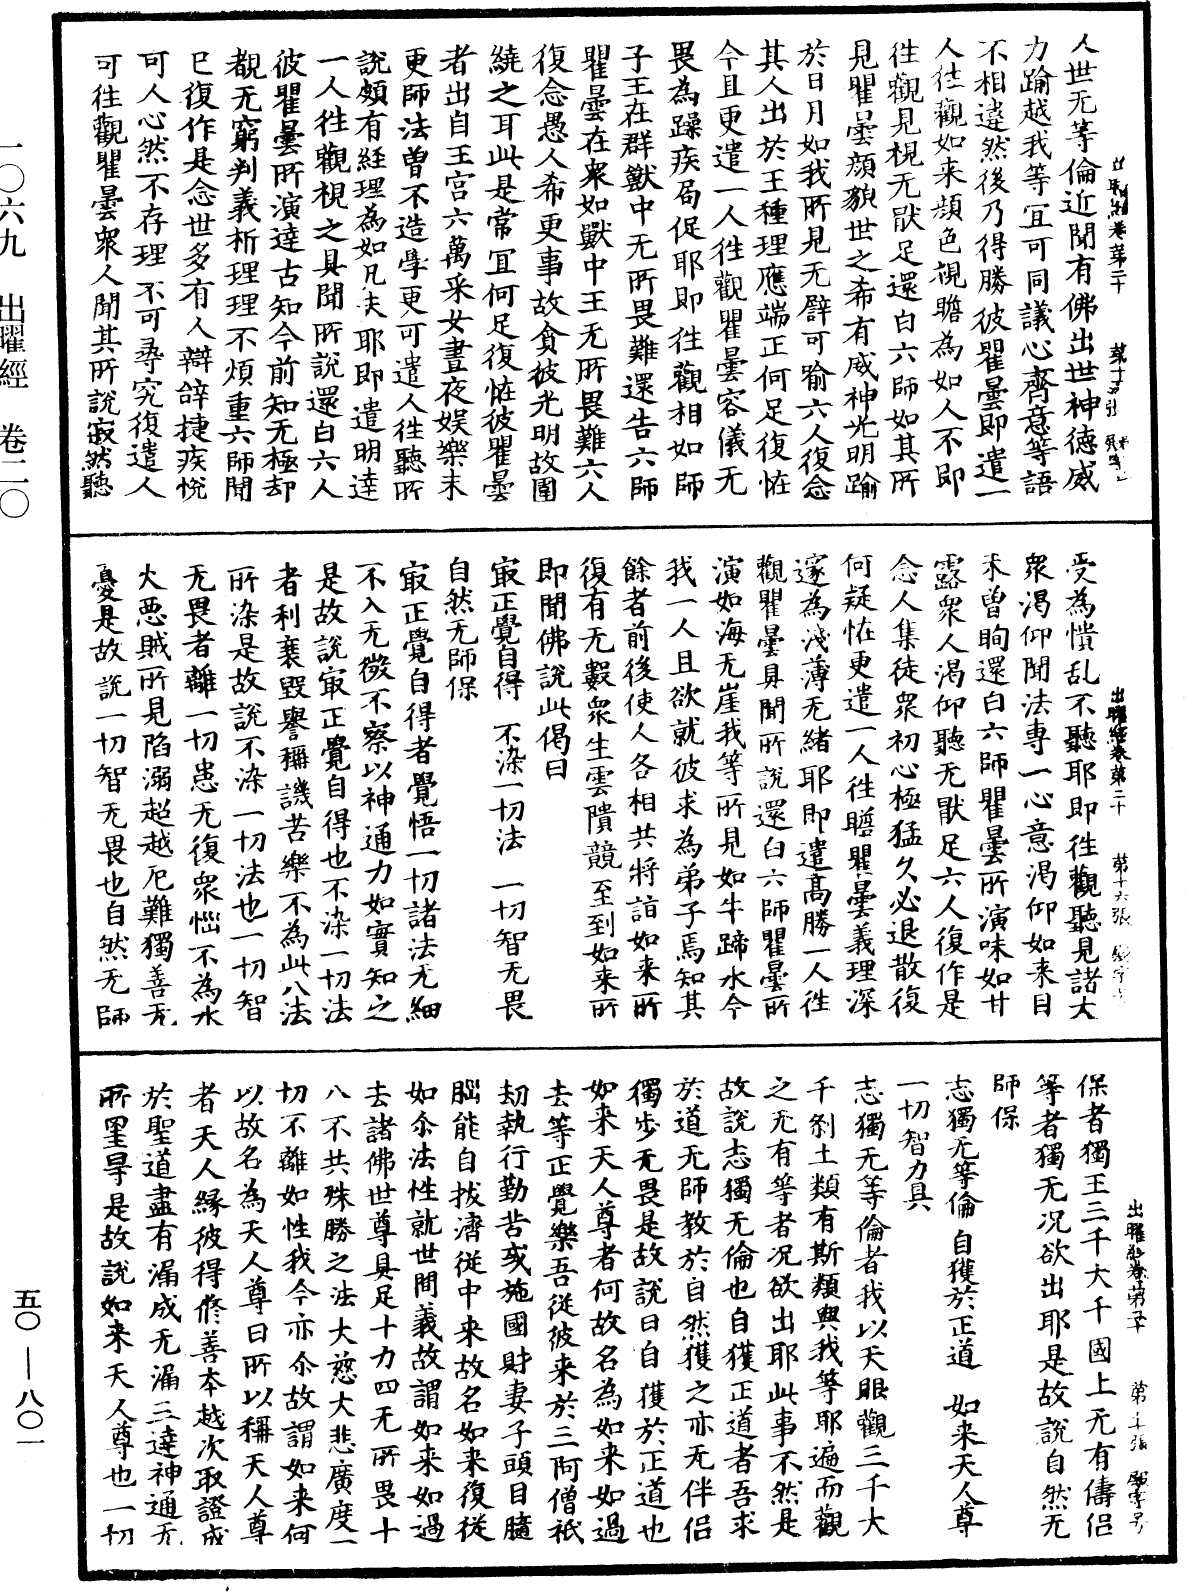 人世无等倫近聞有佛出世神德威
力踰越我等宜可同議心齊意等語
不相違然後乃得勝彼瞿曇即遣一
人往觀如来顔色視瞻為如人不即
往觀見視无猒足還白六師如其所
見瞿曇顔貌世之希有威神光明踰
於日月如我所見无譬可喻六人復念
其人出於王種理應端正何足復恠
今且更遣一人往觀瞿曇容儀无
畏為躁疾局促耶即往觀相如師
子王在群獸中无所畏難還告六師
瞿曇在衆如獸中王无所畏難六人
復念愚人希更事故貪彼光明故圍
繞之耳此是常宜何足復恠彼瞿曇
者出自王宫六萬采女晝夜娱樂未
更師法曽不造學更可遣人往聽所
說頗有經理為如凡夫耶即遣明達
一人往觀視之具聞所說還白六人
彼瞿曇所演達古知今前知无極却
覩无窮判義析理理不煩重六師聞
已復作是念世多有人辯辭捷疾悅
可人心然不存理不可尋究復遣人
可往觀瞿曇衆人聞其所說寂然聽
受為憒乱不聽耶即往觀聽見諸大
衆渴仰聞法専一心意渴仰如来目
未曽眴還白六師瞿曇所演味如甘
露衆人渴仰聽无猒足六人復作是
念人集徒衆初心極猛久必退散復
何疑恠更遣一人往瞻瞿曇義理深
邃為淺薄无緒耶即遣髙勝一人往
觀瞿曇具聞所說還白六師瞿曇所
演如海无崖我等所見如牛蹄水今
我一人且欲就彼求為弟子焉知其
餘者前後使人各相共將詣如来所
復有无數衆生雲隤競至到如来所
即聞佛說此偈曰
㝡正覺自得　不染一切法　一切智无畏
自然无師保
㝡正覺自得者覺悟一切諸法无細
不入无微不察以神通力如實知之
是故說㝡正覺自得也不染一切法
者利衰毀譽稱譏苦樂不為此八法
所染是故說不染一切法也一切智
无畏者離一切患无復衆惱不為水
火惡賊所見陷溺超越厄難獨善无
憂是故說一切智无畏也自然无師
保者獨王三千大千國上无有儔侣
等者獨无况欲出耶是故說自然无
師保
志獨无等倫　自獲於正道　如来天人尊
一切智力具
志獨无等倫者我以天眼觀三千大
千刹土類有斯類與我等耶遍而觀
之无有等者况欲出耶此事不然是
故說志獨无倫也自獲正道者吾求
於道无師教於自然獲之亦无伴侣
獨步无畏是故說曰自獲於正道也
如来天人尊者何故名為如来如過
去等正覺樂吾従彼来於三阿僧祇
劫執行勤苦或施國財妻子頭目髓
腦能自拔濟従中来故名如来復従
如尒法性就世間義故謂如来如過
去諸佛世尊具足十力四无所畏十
八不共殊勝之法大慈大悲廣度一
切不離如性我今亦尒故謂如来何
以故名為天人尊曰所以稱天人尊
者天人緣彼得修善本越次取證成
於聖道盡有漏成无漏三達神通无
所罣㝵是故說如来天人尊也一切
出曜經卷第二十　第十五張
出曜經卷第二十　第十六張
出曜經卷第二十
一〇六九　出曜經　卷二〇
五〇—八〇一